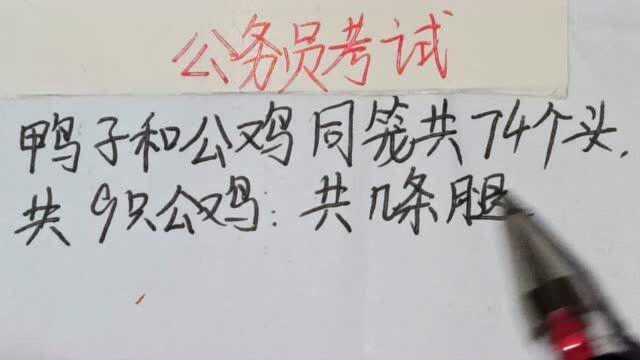 公务员考试
鸭子和公鸡同笼共74个头,
共9只公鸡:共几条腿